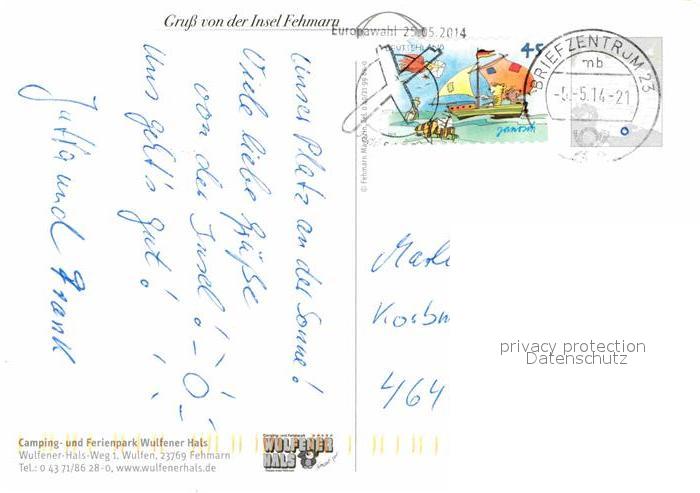 Gruß von der Insel Fehmarn
Unser Platz an der Sonne!
Viele liebe Grüße
von der Insel!
Uns geht's gut!
Jutta und Frank
Camping- und Ferienpark Wulfener Hals
Wulfener-Hals-Weg 1, Wulfen, 23769 Fehmarn
Tel.: 0 43 71/86 28-0, www.wulfenerhals.de
WULFENER
HALS
© Fehmarn Magazin
Europawahl 25.05.2014
DEUTSCHLAND
45
Janosch
BRIEFZENTRUM 23
mb
-5.14-21
464
privacy protection
Datenschutz